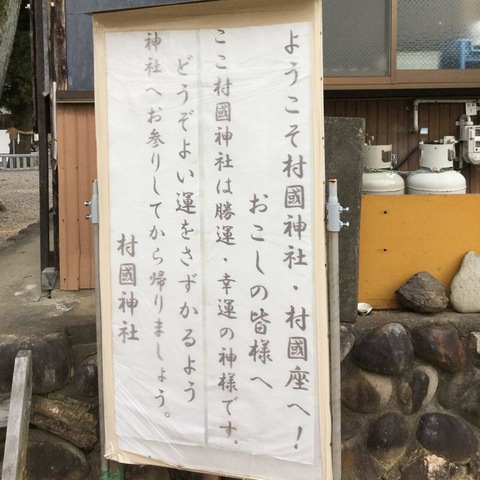 ようこそ村國神社・村國座へ！
おこしの皆様へ
ここ村國神社は勝運・幸運の神様です。
どうぞよい運をさずかるよう
神社へお参りしてから帰りましょう。
村國神社